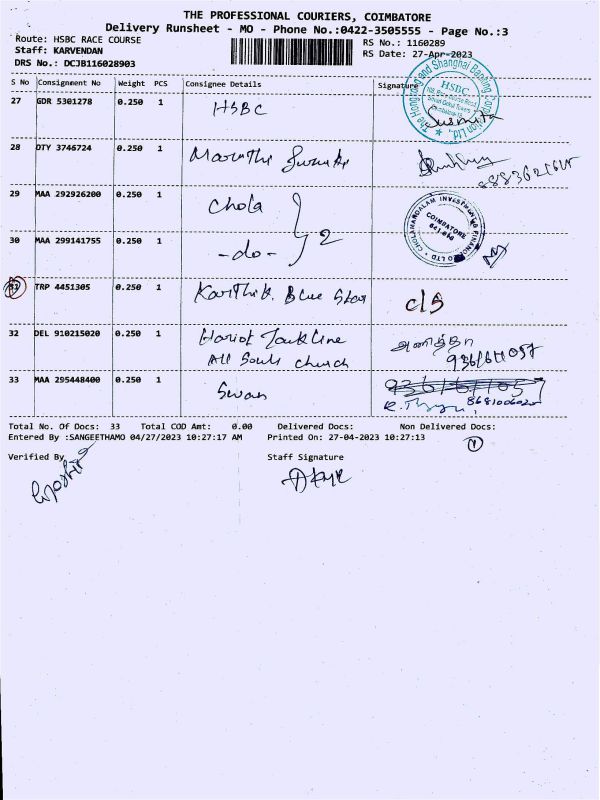 THE PROFESSIONAL COURIERS, COIMBATORE
Delivery Runsheet - MO - Phone No.:0422-3505555 - Page No.:3
Route: HSBC RACE COURSE
RS No.: 1160289
Staff: KARVENDAN
RS Date: 27-Apr-2023
DRS No.: DCJB116028903
S No Consignment No Weight PCS Consignee Details Signature
27 GDR 5301278 0.250 1 HSBC
HSBC
Susmita
28 DTY 3746724 0.250 1 Maruthi
29 MAA 292926200 0.250 1 Chola
COIMBATORE
30 MAA 299141755 0.250 1 -do- 2
31 TRP 4451305 0.250 1 Karthik Blue Star c/s
32 DEL 910215020 0.250 1 அனித்தா
All Souls church
33 MAA 295448400 0.250 1 Swan
8681006020
Total No. Of Docs: 33 Total COD Amt: 0.00 Delivered Docs: Non Delivered Docs:
Entered By :SANGEETHAMO 04/27/2023 10:27:17 AM Printed On: 27-04-2023 10:27:13
1
Verified By
Staff Signature